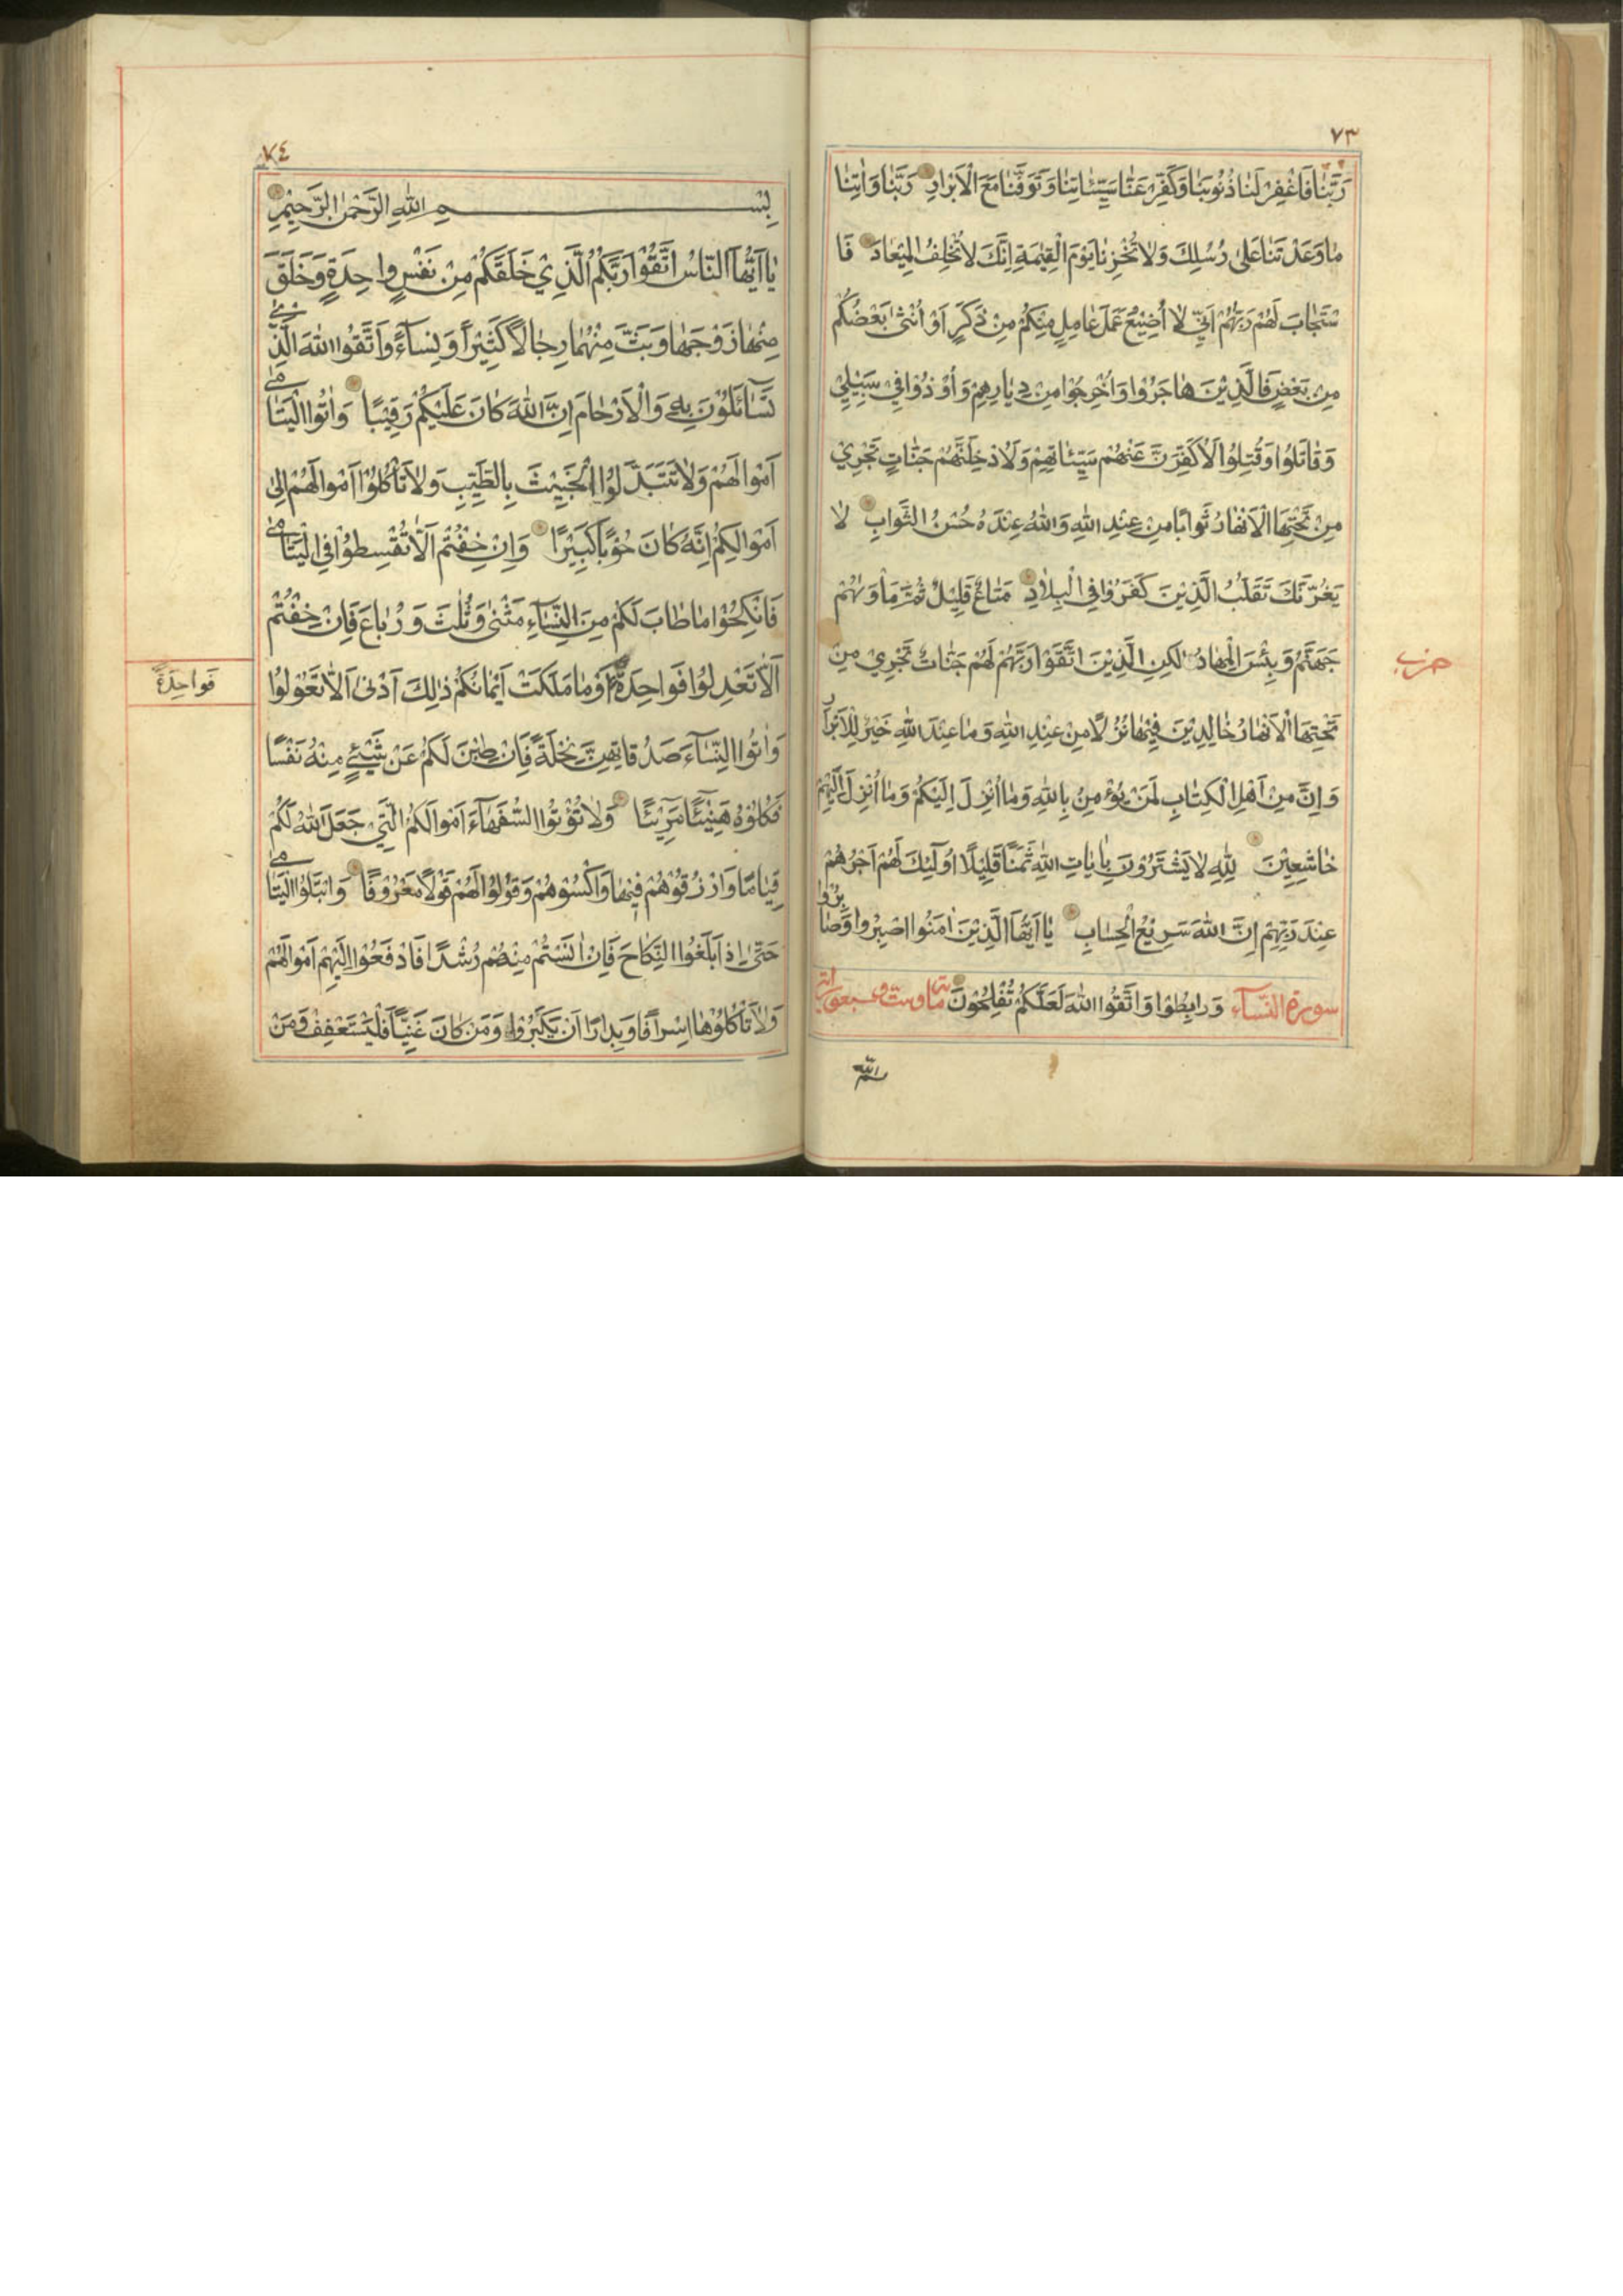 ٧٣
رَبَّنَا فَاغْفِرْ لَنَا ذُنُوبَنَا وَكَفِّرْ عَنَّا سَيِّئَاتِنَا وَتَوَفَّنَا مَعَ الْاَبْرَارِ رَبَّنَا وَاٰتِنَا
مَا وَعَدْتَنَا عَلٰى رُسُلِكَ وَلَا تُخْزِنَا يَوْمَ الْقِيٰمَةِ اِنَّكَ لَا تُخْلِفُ الْمِيْعَادَ فَا
سْتَجَابَ لَهُمْ رَبُّهُمْ اَنِّيْ لَا اُضِيْعُ عَمَلَ عَامِلٍ مِنْكُمْ مِنْ ذَكَرٍ اَوْ اُنْثٰى بَعْضُكُمْ
مِنْ بَعْضٍ فَالَّذِيْنَ هَاجَرُوْا وَاُخْرِجُوْا مِنْ دِيَارِهِمْ وَاُوْذُوْا فِيْ سَبِيْلِيْ
وَقَاتَلُوْا وَقُتِلُوْا لَاُكَفِّرَنَّ عَنْهُمْ سَيِّئَاتِهِمْ وَلَاُدْخِلَنَّهُمْ جَنَّاتٍ تَجْرِيْ
مِنْ تَحْتِهَا الْاَنْهَارُ ثَوَابًا مِنْ عِنْدِ اللّٰهِ وَاللّٰهُ عِنْدَهُ حُسْنُ الثَّوَابِ لَا
يَغُرَّنَّكَ تَقَلُّبُ الَّذِيْنَ كَفَرُوْا فِي الْبِلَادِ مَتَاعٌ قَلِيْلٌ ثُمَّ مَأْوٰيهُمْ
جَهَنَّمُ وَبِئْسَ الْمِهَادُ لٰكِنِ الَّذِيْنَ اتَّقَوْا رَبَّهُمْ لَهُمْ جَنَّاتٌ تَجْرِيْ مِنْ
حزب
تَحْتِهَا الْاَنْهَارُ خَالِدِيْنَ فِيْهَا نُزُلًا مِنْ عِنْدِ اللّٰهِ وَمَا عِنْدَ اللّٰهِ خَيْرٌ لِلْاَبْرَارِ
وَاِنَّ مِنْ اَهْلِ الْكِتَابِ لَمَنْ يُؤْمِنُ بِاللّٰهِ وَمَا اُنْزِلَ اِلَيْكُمْ وَمَا اُنْزِلَ اِلَيْهِمْ
خَاشِعِيْنَ لِلّٰهِ لَا يَشْتَرُوْنَ بِاٰيَاتِ اللّٰهِ ثَمَنًا قَلِيْلًا اُولٰٓئِكَ لَهُمْ اَجْرُهُمْ
عِنْدَ رَبِّهِمْ اِنَّ اللّٰهَ سَرِيْعُ الْحِسَابِ يَا اَيُّهَا الَّذِيْنَ اٰمَنُوا اصْبِرُوْا وَصَابِرُوْا
وَرَابِطُوْا وَاتَّقُوا اللّٰهَ لَعَلَّكُمْ تُفْلِحُوْنَ
سورة النساء
٧٤
بِسْمِ اللّٰهِ الرَّحْمٰنِ الرَّحِيْمِ
يَا اَيُّهَا النَّاسُ اتَّقُوْا رَبَّكُمُ الَّذِيْ خَلَقَكُمْ مِنْ نَفْسٍ وَاحِدَةٍ وَخَلَقَ
مِنْهَا زَوْجَهَا وَبَثَّ مِنْهُمَا رِجَالًا كَثِيْرًا وَنِسَآءً وَاتَّقُوا اللّٰهَ الَّذِيْ
تَسَآئَلُوْنَ بِهِ وَالْاَرْحَامَ اِنَّ اللّٰهَ كَانَ عَلَيْكُمْ رَقِيْبًا وَاٰتُوا الْيَتَامٰى
اَمْوَالَهُمْ وَلَا تَتَبَدَّلُوا الْخَبِيْثَ بِالطَّيِّبِ وَلَا تَأْكُلُوْا اَمْوَالَهُمْ اِلٰى
اَمْوَالِكُمْ اِنَّهُ كَانَ حُوْبًا كَبِيْرًا وَاِنْ خِفْتُمْ اَلَّا تُقْسِطُوْا فِي الْيَتَامٰى
فَانْكِحُوْا مَا طَابَ لَكُمْ مِنَ النِّسَآءِ مَثْنٰى وَثُلٰثَ وَرُبَاعَ فَاِنْ خِفْتُمْ
اَلَّا تَعْدِلُوْا فَوَاحِدَةً اَوْ مَا مَلَكَتْ اَيْمَانُكُمْ ذٰلِكَ اَدْنٰى اَلَّا تَعُوْلُوْا
فَوَاحِدَةً
وَاٰتُوا النِّسَآءَ صَدُقَاتِهِنَّ نِحْلَةً فَاِنْ طِبْنَ لَكُمْ عَنْ شَيْئٍ مِنْهُ نَفْسًا
فَكُلُوْهُ هَنِيْئًا مَرِيْئًا وَلَا تُؤْتُوا السُّفَهَآءَ اَمْوَالَكُمُ الَّتِيْ جَعَلَ اللّٰهُ لَكُمْ
قِيَامًا وَارْزُقُوْهُمْ فِيْهَا وَاكْسُوْهُمْ وَقُوْلُوْا لَهُمْ قَوْلًا مَعْرُوْفًا وَابْتَلُوا الْيَتَامٰى
حَتّٰى اِذَا بَلَغُوا النِّكَاحَ فَاِنْ اٰنَسْتُمْ مِنْهُمْ رُشْدًا فَادْفَعُوْا اِلَيْهِمْ اَمْوَالَهُمْ
وَلَا تَأْكُلُوْهَا اِسْرَافًا وَبِدَارًا اَنْ يَكْبَرُوْا وَمَنْ كَانَ غَنِيًّا فَلْيَسْتَعْفِفْ وَمَنْ